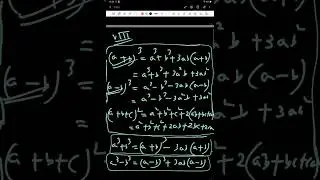 VIII
(a+b)³ = a³+b³+3ab(a+b)
= a³+b³+3a²b+3ab²
(a-b)³ = a³-b³-3ab(a-b)
= a³-b³-3a²b+3ab²
(a+b+c)² = a²+b²+c²+2(ab+bc+ca
= a²+b²+c²+2ab+2bc+2ca
a³+b³ = (a+b)³-3ab(a+b)
a³-b³ = (a-b)³+3ab(a-b)